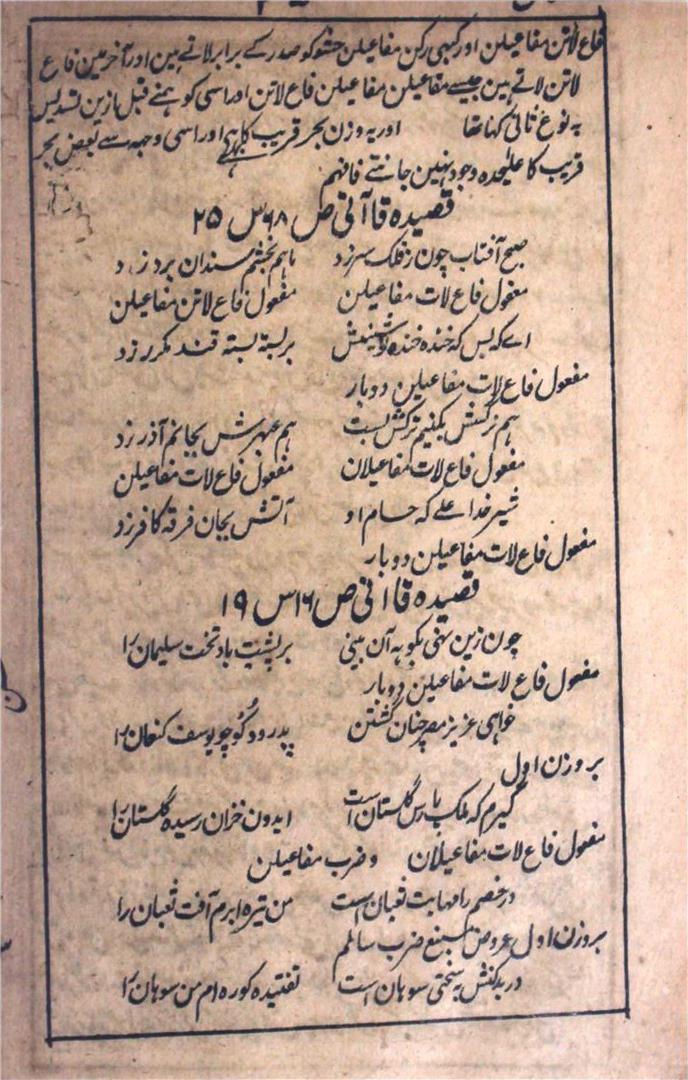 فاع لاتن مفاعیلن اور کبھی رکن مفاعیلن حشو کو صدر کے برابر لاتے ہین اور آخر مین فاع
لاتن لاتے ہین جیسے مفاعیلن مفاعیلن فاع لاتن اور اسی کو ہمنے قبل ازین تسدیس
بہ نوع ثانی کہا تھا اور یہ وزن بحر قریب کا ہے اور اسی وجہہ سے بعض بحر
قریب کا علٰیحدہ وجود نہین جانتے فافہم
قصیدہ قاآنی ص ۶۸ س ۲۵
صبح آفتاب چون ز فلک سر زد ماہم بخشم سندان بر در زد
مفعول فاع لات مفاعیلن مفعول فاع لاتن مفاعیلن
اے کہ بس کہ خندہ خندہ نوشینش بر بستہ بستہ قند مکرر زد
مفعول فاع لات مفاعیلن دوبار
ہم نرگسش بکینم ترکش بست ہم عبہرش بجانم آذر زد
مفعول فاع لات مفاعیلان مفعول فاع لات مفاعیلن
شیر خدا علی کہ حسام او آتش بجان فرقہ کافر زد
مفعول فاع لات مفاعیلن دوبار
قصیدہ قاآنی ص ۱۶ س ۱۹
چون زین نہی بکوہہ آن بینی بر پشت باد تخت سلیمان را
مفعول فاع لات مفاعیلن دوبار
خواہی عزیز مصر چنان گشتن پدرود گو چو یوسف کنعان را
بر وزن اول
گیرم کہ ملک پارس گلستان است ایدون خزان رسیدہ گلستان را
مفعول فاع لات مفاعیلان و ضرب مفاعیلن
در خصم را مہابت ثعبان است من تیرہ ابرم آفت ثعبان را
بر وزن اول عروض مسبغ ضرب سالم
در بدکنش بہ سختی سوہان است تفتیدہ کورہ ام من سوہان را